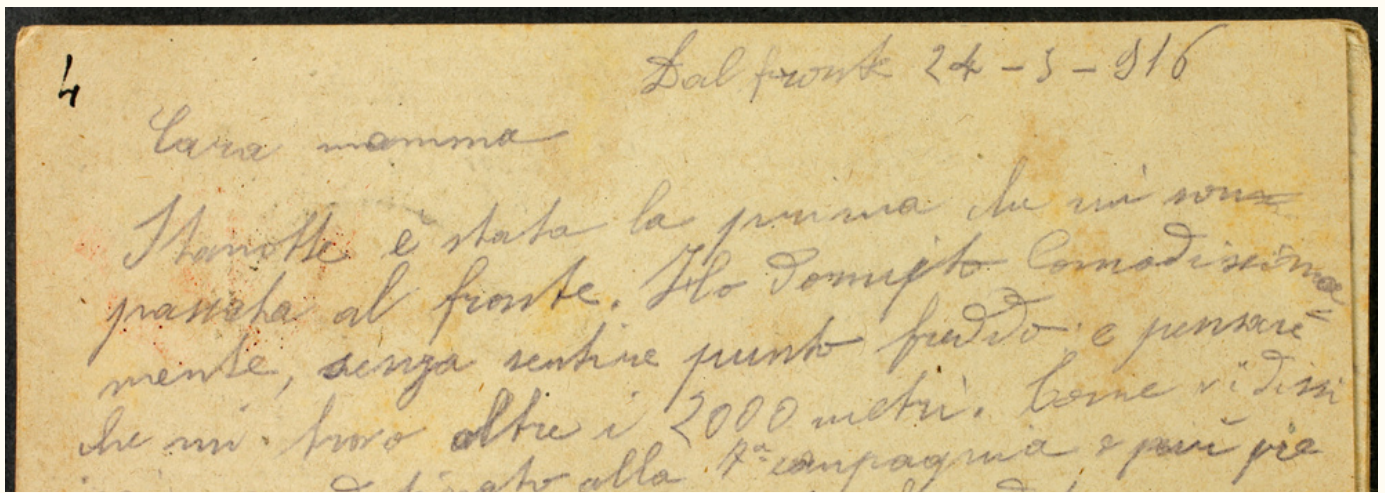 4
Dal fronte 24-5-916
Cara mamma
Stanotte è stata la prima che mi son
passata al fronte. Ho dormito comodissima=
mente, senza sentire punto freddo e pensare
che mi trovo oltre i 2000 metri. Come vi dissi
alla 7ª compagnia e più pre